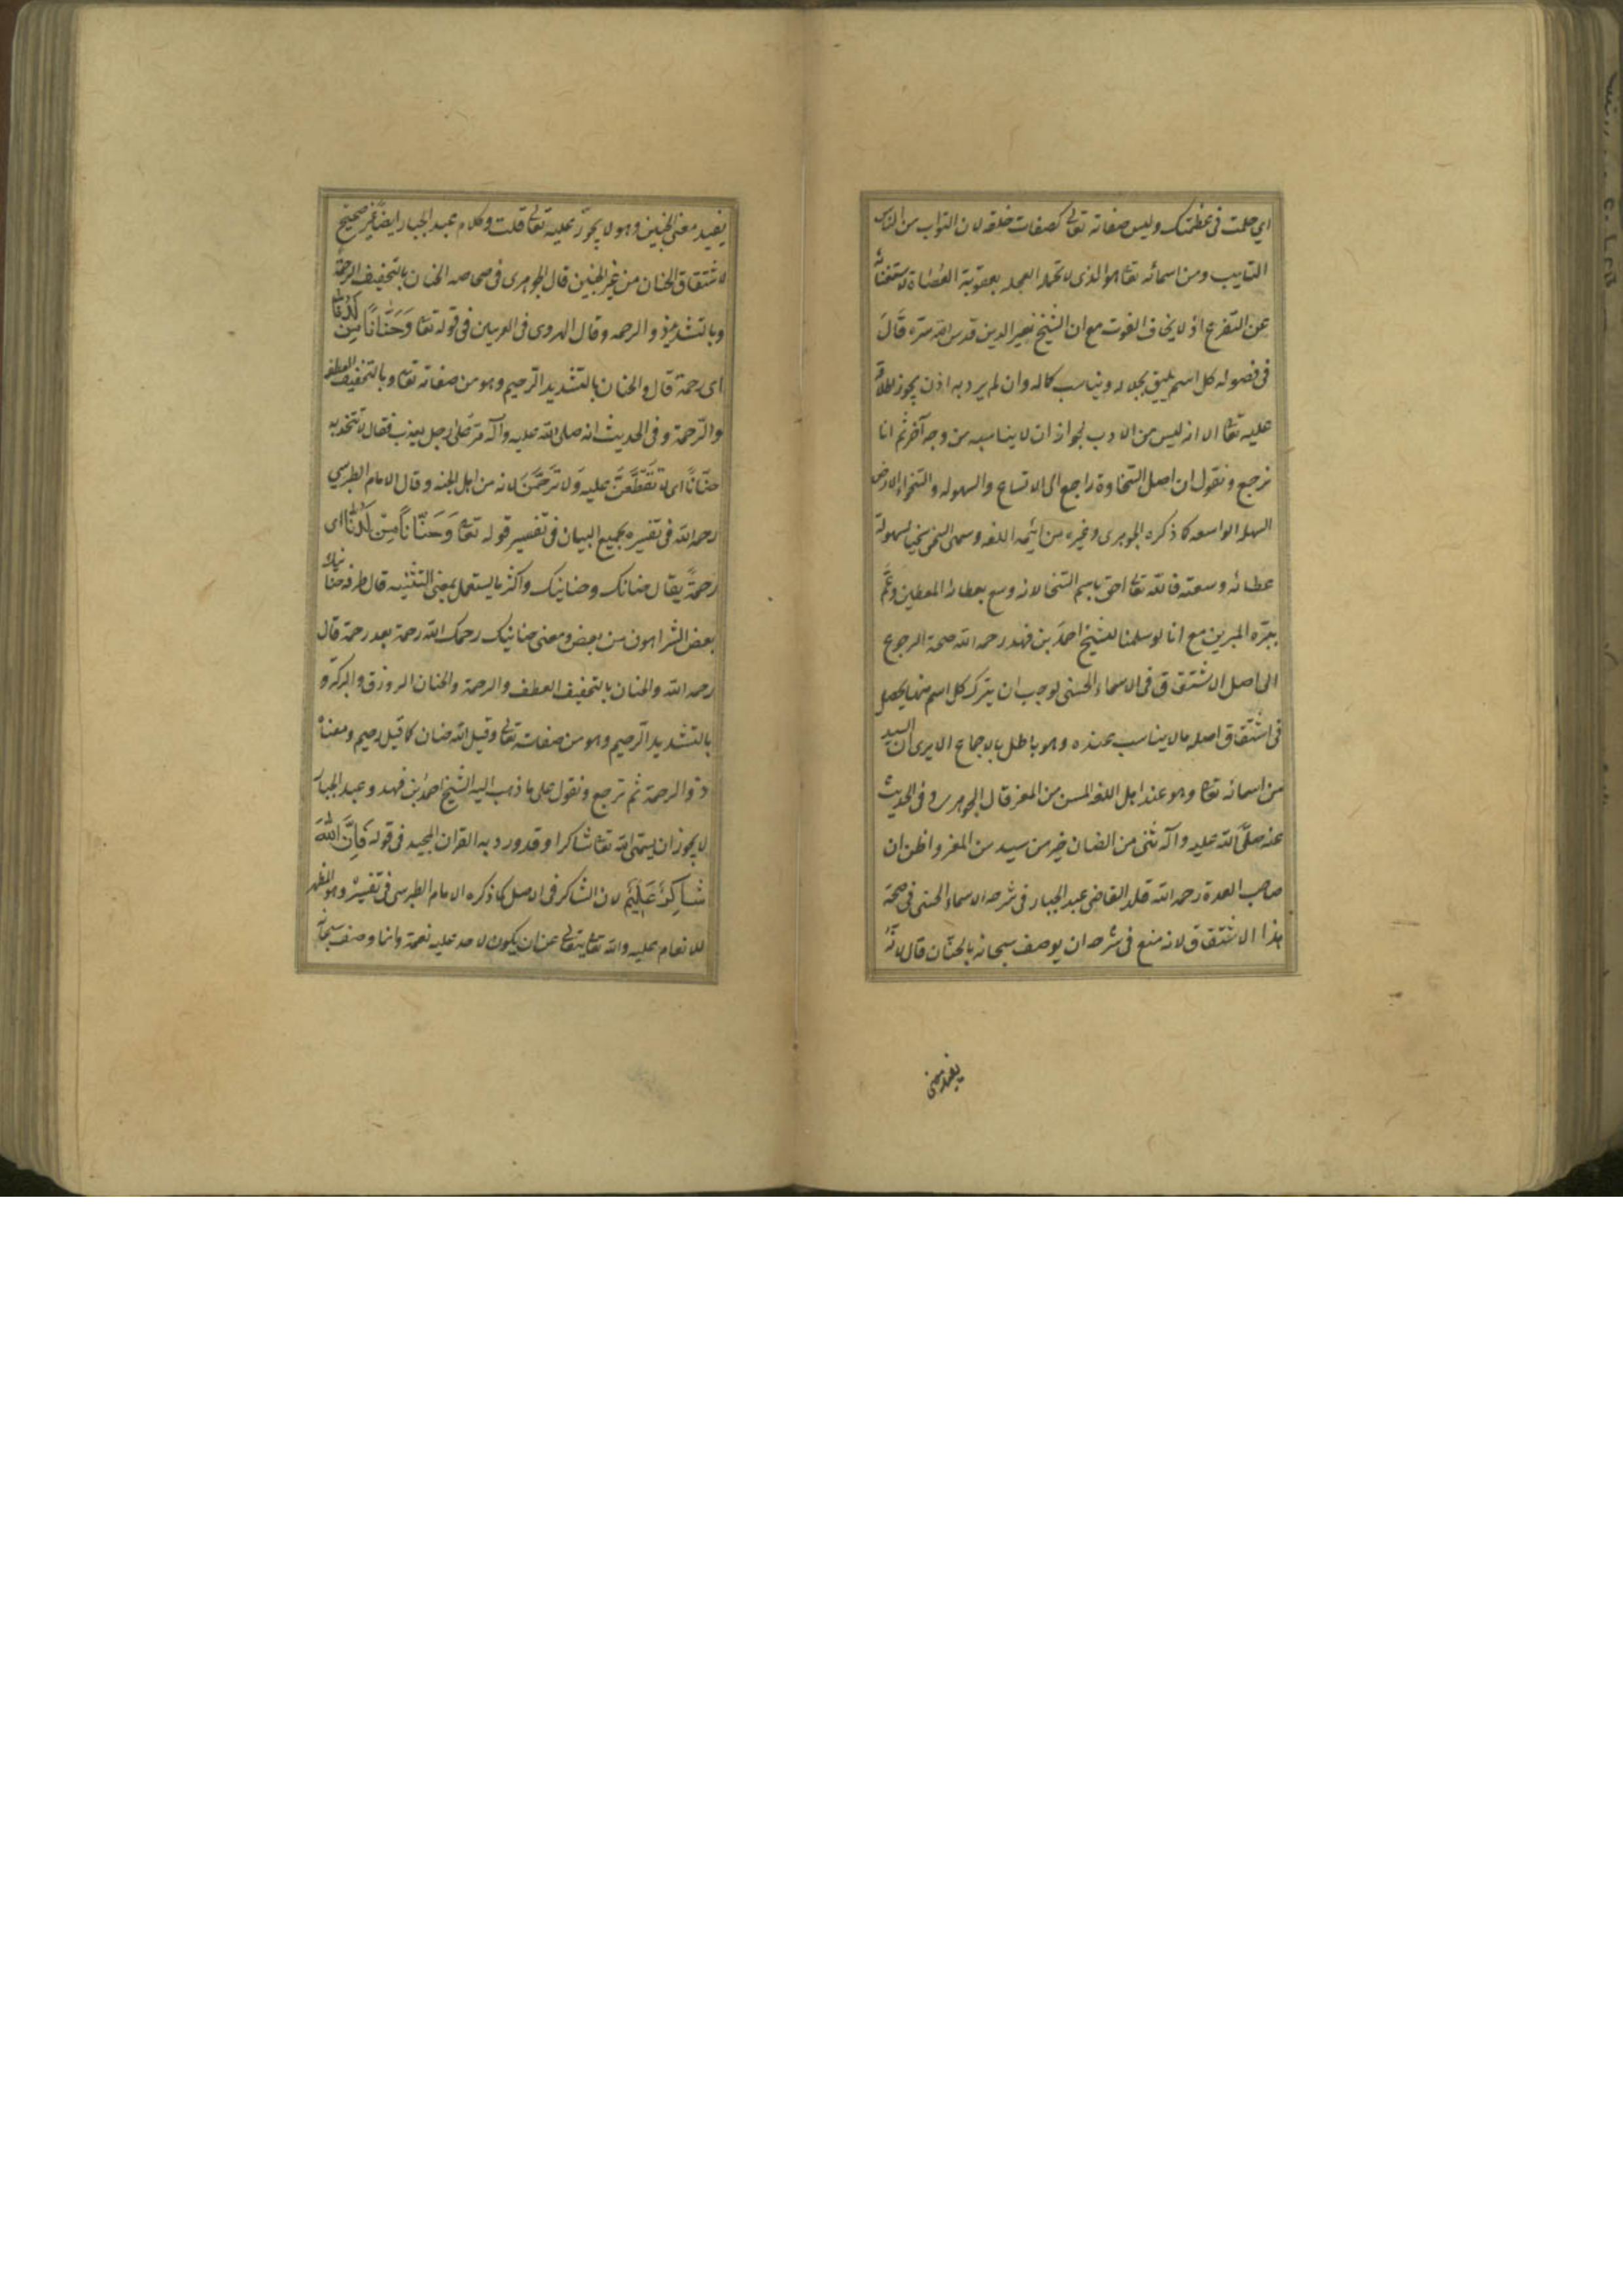 اي حلمت في عظمتك وليس صفاته تعالى كصفات خلقه لان التواب من الناس
التايب ومن اسمائه تعا هو الذي لا تحمله العجله بعقوبة العُصاة لاستغنائه
عن التفرع اذ لا يخاف الفوت مع ان الشيخ نصير الدين قدس الله سره قال
في فصوله كل اسم يليق بجلاله ويناسب كماله وان لم يرد به اذن يجوز اطلاقه
عليه تعا الا انه ليس من الادب لجواز ان لا يناسبه من وجه آخر ثم انا
نرجع ونقول ان اصل السخاوة راجع الى الاتساع والسهوله والسخواء الارض
السهله الواسعه كما ذكره الجوهرى وغيره من ائمه اللغه وسمى السخى سخيا لسهولة
عطائه وسعته فالله تعالى احق باسم السخا لانه وسع بعطائه المعطين وعمّ
ببره المبرين مع انا لو سلمنا للشيخ احمد بن فهد رحمه الله صحة الرجوع
الى اصل الاشتقاق في الاسماء الحسنى لوجب ان يترك كل اسم منها يحصل
في اشتقاق اصله مالا يناسب عنده وهو باطل بالاجماع الا يرى ان السيد
من اسمائه تعا وهو عند اهل اللغه المسن من المعز قال الجوهرى وفى الحديث
عنه صلّى الله عليه وآله ثنى من الضان خير من سيد من المعز واظن ان
صاحب العدة رحمه الله قلد القاضى عبد الجبار فى شرحه الاسماء الحسنى فى صحة
هذا الاشتقاق لانه منع فى شرحه ان يوصف سبحانه بالحنّان قال لانه
يفيد معنى
يفيد معنى الحنين وهو لا يجوز عليه تعالى قلت وكلام عبد الجبار ايضا غير صحيح
لاشتقاق الحنان من غير الحنين قال الجوهرى فى صحاحه الحنان بالتخفيف الرحمة
وبالتشديد ذو الرحمه وقال الهروى فى الغريبين فى قوله تعا وَحَنَانًا مِن لَدُنَّا
اى رحمة قال والحنان بالتشديد الرحيم وهو من صفاته تعا وبالتخفيف العطف
والرحمة وفى الحديث انه صلى الله عليه وآله مر على رجل يعذب فقال لاتخذنه
حنانًا اى لا تعطفن عليه ولا ترحمن لانه من اهل الجنه وقال الامام الطبرسي
رحمه الله فى تفسيره بجميع البيان فى تفسير قوله تعا وَحَنَانًا مِن لَدُنَّا اى
رحمة يقال حنانك وحنانيك واكثر ما يستعمل بمعنى التثنيه قال طرفه حنانيك
بعض الشر اهون من بعض ومعنى حنانيك رحمك الله رحمة بعد رحمة قال
رحمه الله والحنان بالتخفيف العطف والرحمة والحنان الرزق والبركة و
بالتشديد الرحيم وهو من صفات تعالى وقيل الله حنان كما قيل رحيم ومعناه
ذو الرحمة ثم نرجع ونقول على ما ذهب اليه الشيخ احمد بن فهد وعبد الجبار
لا يجوز ان يسمى الله تعا شاكرا وقد ورد به القران المجيد فى قوله فَإِنَّ اللهَ
شَاكِرٌ عَلِيمٌ لان الشاكر فى الاصل كما ذكره الامام الطبرسى فى تفسيره وهو المظهر
للانعام عليه والله تعا يتعالى عن ان يكون لاحد عليه نعمة وانما وصف سبحانه